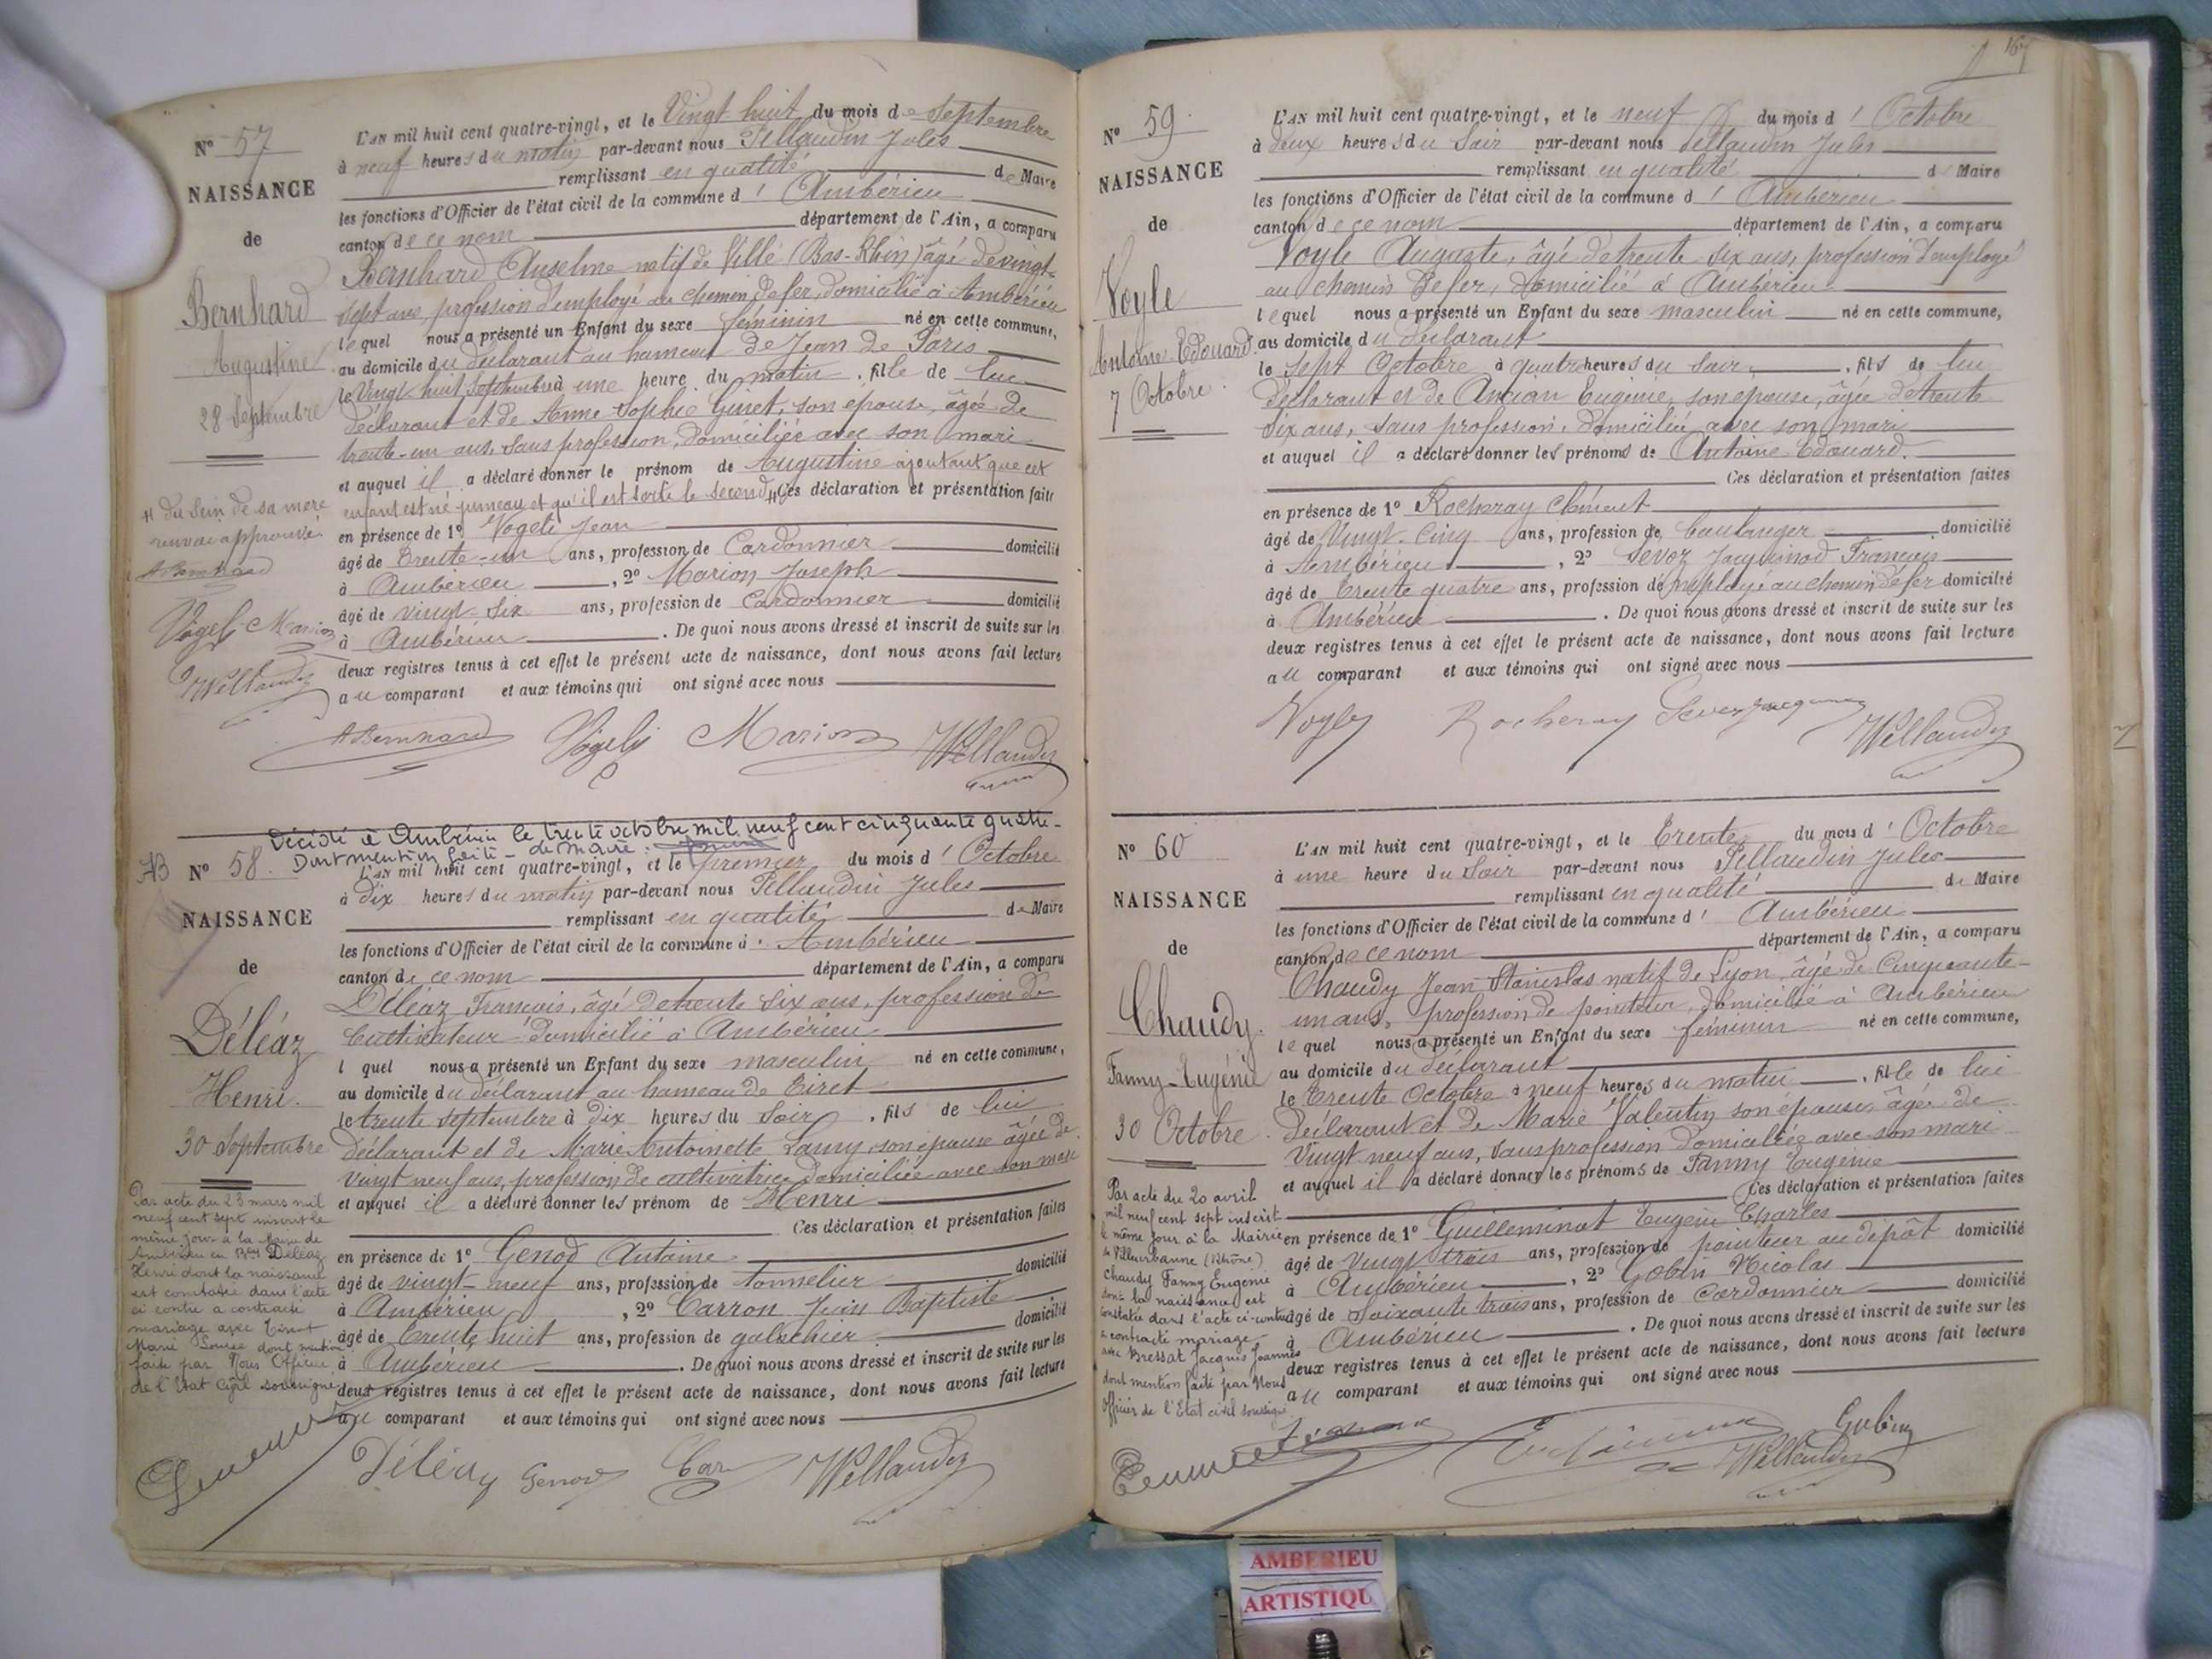 N° 57
NAISSANCE
de
Bernhard
Augustine
28 Septembre
L'AN mil huit cent quatre-vingt, et le Vingt huit du mois de Septembre
à neuf heures du matin par-devant nous Pellaudin Jules
remplissant en qualité de Maire
les fonctions d'Officier de l'état civil de la commune d'Ambérieu
canton de ce nom département de l'Ain, a comparu
Bernhard Anselme natif de Villé (Bas-Rhin) âgé de vingt-
sept ans, profession d'employé au chemin de fer, domicilié à Ambérieu
lequel nous a présenté un Enfant du sexe féminin né en cette commune,
au domicile du déclarant au hameau de Jean de Paris
le Vingt-huit Septembre à une heure du matin, fille de lui
déclarant et de Anne Sophie Ginet, son épouse, âgée de
trente-un ans, sans profession, domiciliée avec son mari
et auquel il a déclaré donner le prénom de Augustine ajoutant que cet
enfant est né jumeau et qu'il est sorti le second # Ces déclaration et présentation faite
# du sein de sa mère
renvoi approuvé
ABernhard
Vögeli Marion
Pellaudin
en présence de 1° Vogeli Jean
âgé de trente-un ans, profession de Cordonnier domicilié
à Ambérieu, 2° Marion Joseph
âgé de vingt-six ans, profession de Cordonnier domicilié
à Ambérieu. De quoi nous avons dressé et inscrit de suite sur les
deux registres tenus à cet effet le présent acte de naissance, dont nous avons fait lecture
au comparant et aux témoins qui ont signé avec nous
ABernhard Vögeli Marion Pellaudin
Décédé à Ambérieu le trente octobre mil neuf cent cinquante quatre-
Dont mention faite - de maire.
N° 58.
NAISSANCE
de
Déléaz
Henri.
30 Septembre
L'AN mil huit cent quatre-vingt, et le premier du mois d'Octobre
à dix heures du matin par-devant nous Pellaudin Jules
remplissant en qualité de Maire
les fonctions d'Officier de l'état civil de la commune d'Ambérieu
canton de ce nom département de l'Ain, a comparu
Déléaz François, âgé de trente six ans, profession de
Cultivateur domicilié à Ambérieu
l quel nous a présenté un Enfant du sexe masculin né en cette commune,
au domicile du déclarant au hameau de Tiret
le trente septembre à dix heures du soir, fils de lui
déclarant et de Marie Antoinette Lamy, son épouse âgée de
vingt neuf ans, profession de cultivatrice domiciliée avec son mari
et auquel il a déclaré donner les prénom de Henri
Ces déclaration et présentation faites
Par acte du 23 mars mil
neuf cent sept inscrit le
même jour à la Mairie de
Ambérieu en Bey Déléaz
Henri dont la naissance
est constatée dans l'acte
ci contre a contracté
mariage avec Tenant
Marie Louise dont mention
faite par Nous Officier
de l'Etat Civil soussigné
en présence de 1° Genod Antoine
âgé de vingt-neuf ans, profession de tonnelier domicilié
à Ambérieu, 2° Carron Jean Baptiste
âgé de trente huit ans, profession de galochier domicilié
à Ambérieu. De quoi nous avons dressé et inscrit de suite sur les
deux registres tenus à cet effet le présent acte de naissance, dont nous avons fait lecture
au comparant et aux témoins qui ont signé avec nous
Déléaz Genod Car Pellaudin
167
N° 59.
NAISSANCE
de
Voyle
Antoine-Edouard.
7 Octobre.
L'AN mil huit cent quatre-vingt, et le neuf du mois d'Octobre
à deux heures du Soir par-devant nous Pellaudin Jules
remplissant en qualité de Maire
les fonctions d'Officier de l'état civil de la commune d'Ambérieu
canton de ce nom département de l'Ain, a comparu
Voyle Auguste, âgé de trente six ans, profession d'employé
au chemin de fer, domicilié à Ambérieu
lequel nous a présenté un Enfant du sexe masculin né en cette commune,
au domicile du déclarant
le sept Octobre à quatre heures du soir, fils de lui
déclarant et de Ancian Eugénie, son épouse, âgée de trente
six ans, sans profession, domiciliée avec son mari
et auquel il a déclaré donner les prénoms de Antoine Edouard.
Ces déclaration et présentation faites
en présence de 1° Rocheray Clément
âgé de Vingt-Cinq ans, profession de boulanger domicilié
à Ambérieu, 2° Sevoz Jacquinod François
âgé de trente quatre ans, profession d'employé au chemin de fer domicilié
à Ambérieu. De quoi nous avons dressé et inscrit de suite sur les
deux registres tenus à cet effet le présent acte de naissance, dont nous avons fait lecture
au comparant et aux témoins qui ont signé avec nous
Voyle Rocheray Pellaudin
N° 60
NAISSANCE
de
Chaudy.
Fanny-Eugénie
30 Octobre.
L'AN mil huit cent quatre-vingt, et le trente du mois d'Octobre
à une heure du soir par-devant nous Pellaudin Jules
remplissant en qualité de Maire
les fonctions d'Officier de l'état civil de la commune d'Ambérieu
canton de ce nom département de l'Ain, a comparu
Chaudy Jean Stanislas natif de Lyon, âgé de Cinquante-
un ans, profession de pointeur, domicilié à Ambérieu
lequel nous a présenté un Enfant du sexe féminin né en cette commune,
au domicile du déclarant
le trente Octobre à neuf heures du matin, fille de lui
déclarant et de Marie Valentin son épouse, âgée de
Vingt neuf ans, sans profession domiciliée avec son mari
et auquel il a déclaré donner les prénoms de Fanny Eugénie
Ces déclaration et présentation faites
Par acte du 20 avril
mil neuf cent sept inscrit
le même jour à la Mairie
de Villeurbanne (Rhône)
Chaudy Fanny Eugénie
dont la naissance est
constatée dans l'acte ci-contre
a contracté mariage
avec Bressat Jacques Joannès
dont mention faite par Nous
Officier de l'Etat civil soussigné
en présence de 1° Guilleminot Eugène Charles
âgé de vingt trois ans, profession de pointeur au dépôt domicilié
à Ambérieu, 2° Gobin Nicolas
âgé de soixante trois ans, profession de Cordonnier domicilié
à Ambérieu. De quoi nous avons dressé et inscrit de suite sur les
deux registres tenus à cet effet le présent acte de naissance, dont nous avons fait lecture
au comparant et aux témoins qui ont signé avec nous
Gobin
Pellaudin
AMBERIEU
ARTISTIQU